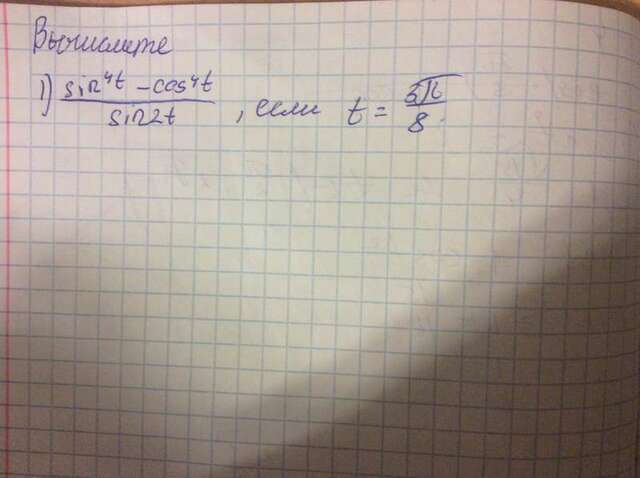 Вычислите
1) sin⁴t - cos⁴t / sin2t , если t = 5π/8